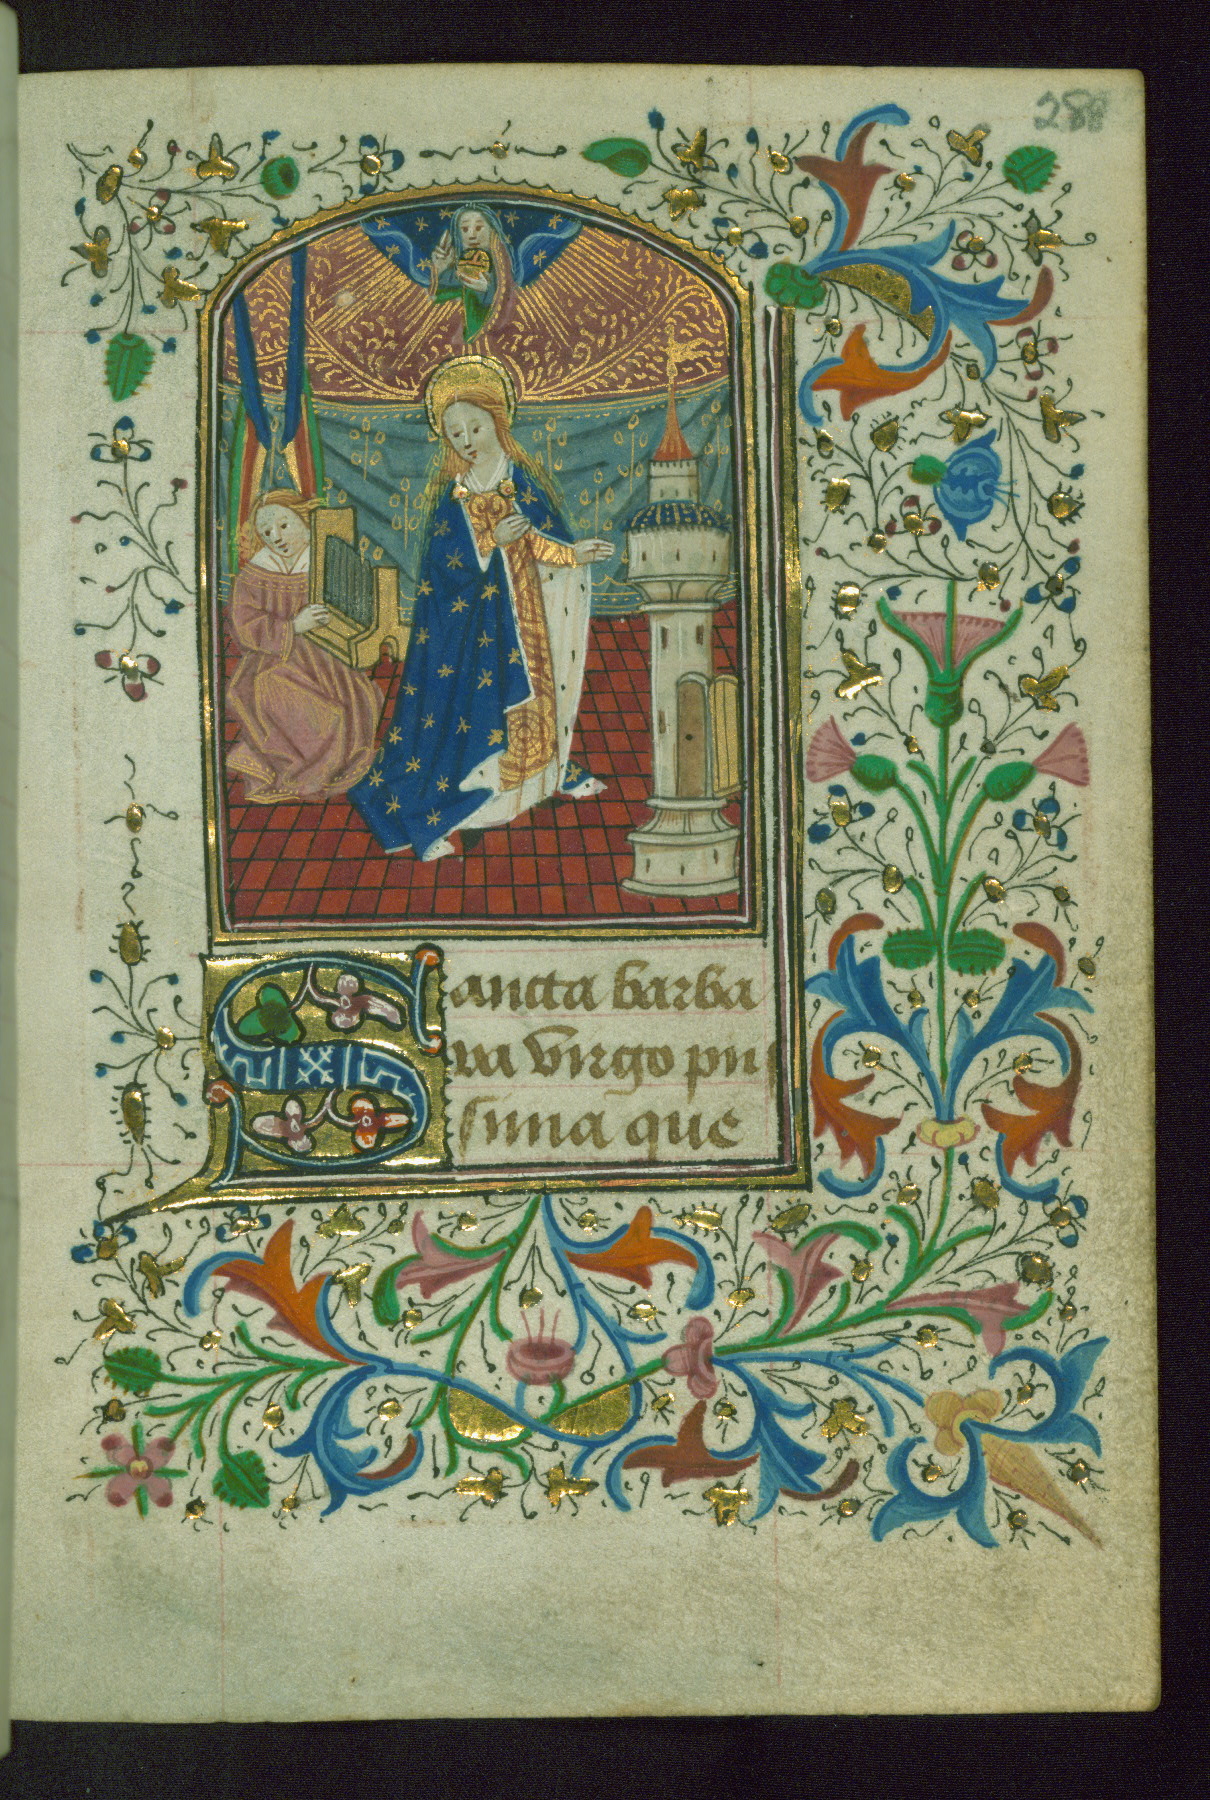 288
Sancta barba
ra virgo pii
sima que